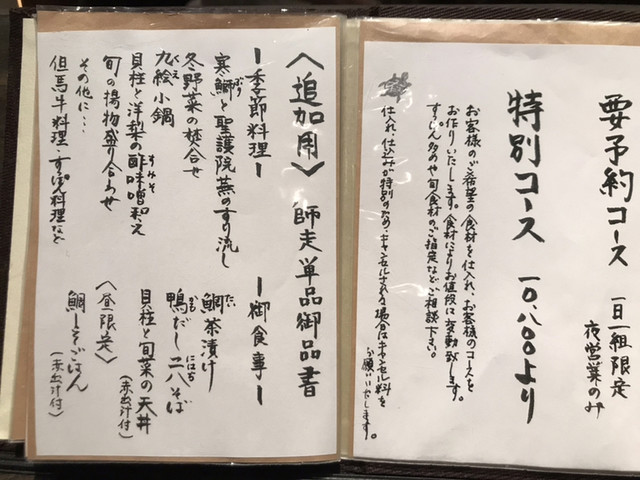 要予約コース 一日一組限定
夜営業のみ
特別コース 一〇、八〇〇より
お客様のご希望の食材を仕入れ、お客様のコースを
お作りいたします。食材によりお値段は変動致します。
すっぽん鍋や旬食材のご指定などご相談下さい。
仕入れ、仕込みが特別のため、キャンセルされる場合はキャンセル料を
お願いいたします。
〈追加用〉 師走単品御品書
ー季節料理ー
寒鰤と聖護院蕪のすり流し
ぶり
冬野菜の焚合せ
九絵小鍋
くえ
貝柱と洋梨の酢味噌和え
すみそ
旬の揚物盛り合わせ
その他に…
但馬牛料理・すっぽん料理など
ー御食事ー
鯛茶漬け
たい
鴨だし二八そば
かも にはち
貝柱と旬菜の天丼
(赤出汁付)
〈昼限定〉
鯛しそごはん
(赤出汁付)